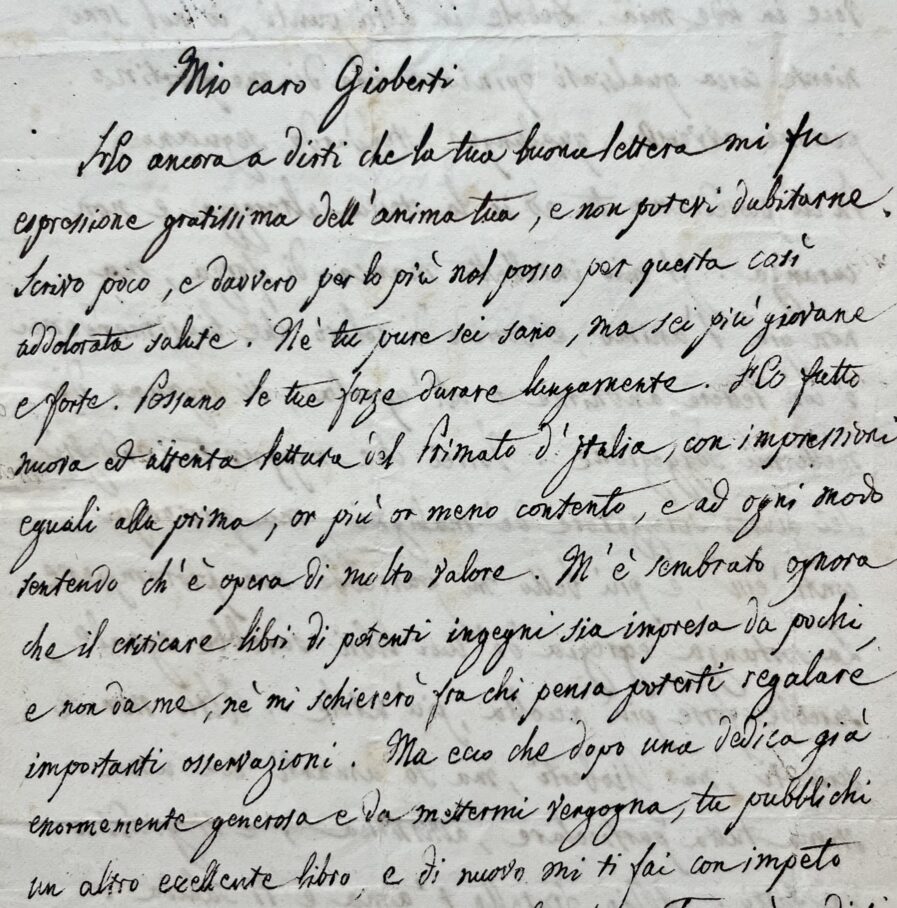 Mio caro Gioberti
Ho ancora a dirti che la tua buona lettera mi fu
espressione gratissima dell'anima tua, e non potevi dubitarne.
Scrivo poco, e davvero per lo più nol posso per questa così
addolorata salute. Nè tu pure sei sano, ma sei più giovane
e forte. Possano le tue forze durare lungamente. Ho fatto
nuova ed attenta lettura del Primato d'Italia, con impressioni
eguali alla prima, or più or meno contento, e ad ogni modo
sentendo ch'è opera di molto valore. M'è sembrato ognora
che il criticare libri di potenti ingegni sia impresa da pochi,
e non da me, nè mi schiererò fra chi pensa poterti regalare
importanti osservazioni. Ma ecco che dopo una dedica già
enormemente generosa e da mettermi vergogna, tu pubblichi
un altro eccellente libro, e di nuovo mi ti fai con impeto